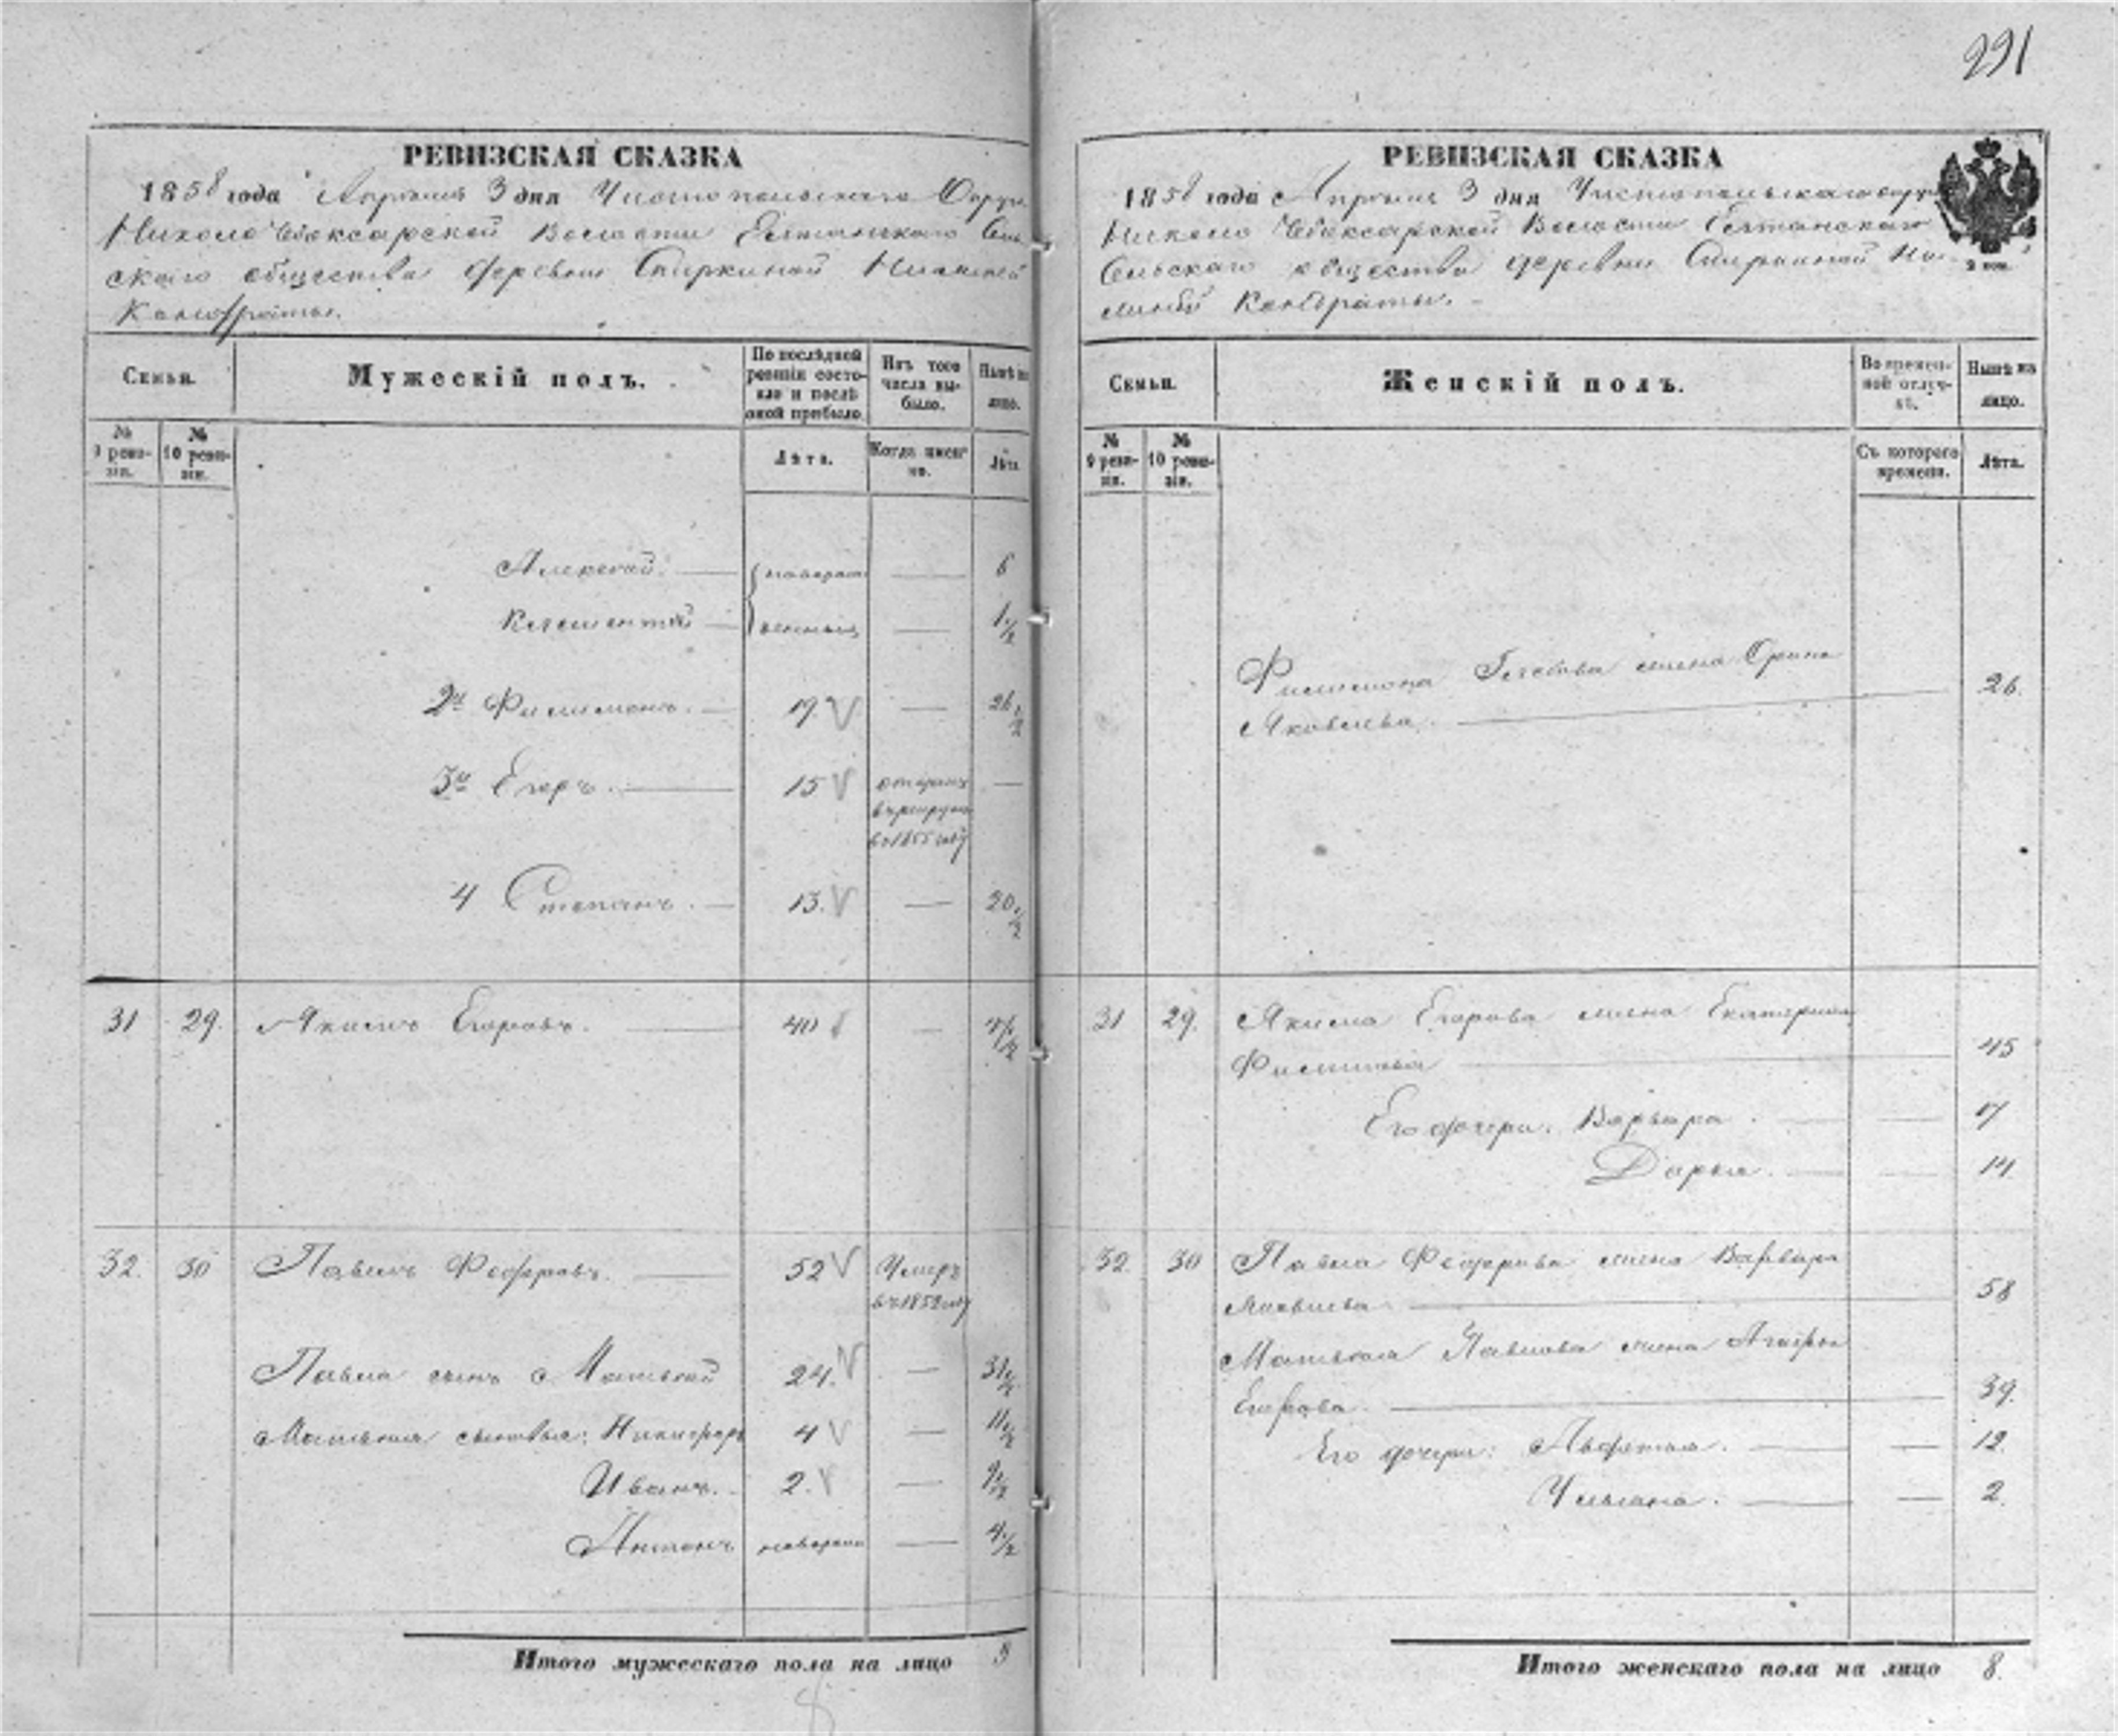 291
РЕВИЗСКАЯ СКАЗКА
1858 года Апреля 3 дня Чистопольскаго Округа
Николо Чебоксарской Волости Ель
скаго общества деревни Спиркиной Нижней
Кондраты.
Семьи.
Мужескій полъ.
По послѣдней ревизіи состояло и послѣ оной прибыло.
Изъ того числа выбыло.
Нынѣ на лицо.
№ 9 ревизіи.
№ 10 ревизіи.
Лѣта.
Когда именно.
Лѣта.
Алексей. новорож — 6
Клементий денныя — 1 1/2
2й Филимонъ. 19. — 26 1/2
3й Егоръ. 15 отданъ в рекруты в 1855 году —
4 Степанъ. 13. — 20 1/2
31 29. Якимъ Егоровъ. 40 —
32. 30 Павелъ Федоровъ. 52 Умеръ въ 1852 году
Павла сынъ Матвей 24. — 31 1/2
Матвея сыновья: Никифоръ 4 — 11 1/2
Иванъ. 2. — 9 1/2
Антонъ новорож — 4 1/2
Итого мужескаго пола на лицо 9
РЕВИЗСКАЯ СКАЗКА
1858 года Апреля 3 дня Чистопольскаго округа
Николо Чебоксарской Волости
Сельскаго общества деревни Спиркиной Ни
жней Кондраты. -
2 коп.
Семьи.
Женскій полъ.
Во временной отлучкѣ.
Нынѣ на лицо.
№ 9 ревизіи.
№ 10 ревизіи.
Съ котораго времени.
Лѣта.
Филимона Глебова жена Орина
Яковлева. 26.
31 29. Якима Егорова жена Екатерина
Филипова 45
Его дочери: Варвара. — 17
Дарья. — 14
32. 30 Павла Федорова жена Варвара
58
Матвея Павлова жена Агафья
Егорова. 39.
Его дочери: Авдотья. — 12.
Ульяна. — 2.
Итого женскаго пола на лицо 8.